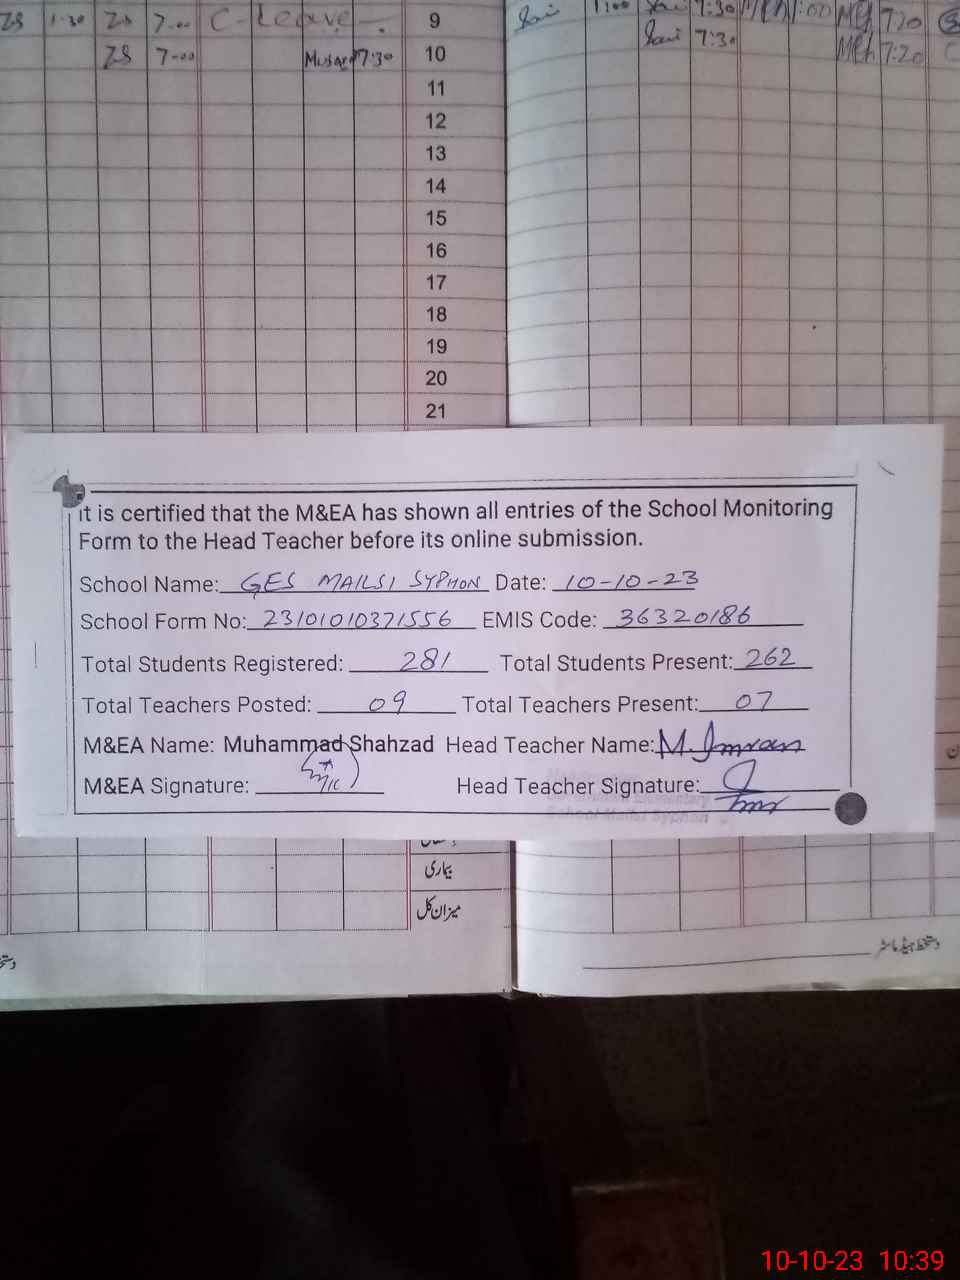 ZS 1.30 ZS 7.00 C-Leave 9 1:00 7:30 1:00 7:20
ZS 7-00 7:30 10 7:30 7:20
11
12
13
14
15
16
17
18
19
20
21
it is certified that the M&EA has shown all entries of the School Monitoring
Form to the Head Teacher before its online submission.
School Name: GES MAILSI SYPHON Date: 10-10-23
School Form No: 23101010371556 EMIS Code: 36320186
Total Students Registered: 281 Total Students Present: 262
Total Teachers Posted: 09 Total Teachers Present: 07
M&EA Name: Muhammad Shahzad Head Teacher Name: M. Imran
M&EA Signature: Head Teacher Signature:
Elementary
School Mailsi Syphon
بیماری
میزان کل
دستخط ہیڈ ماسٹر
10-10-23 10:39